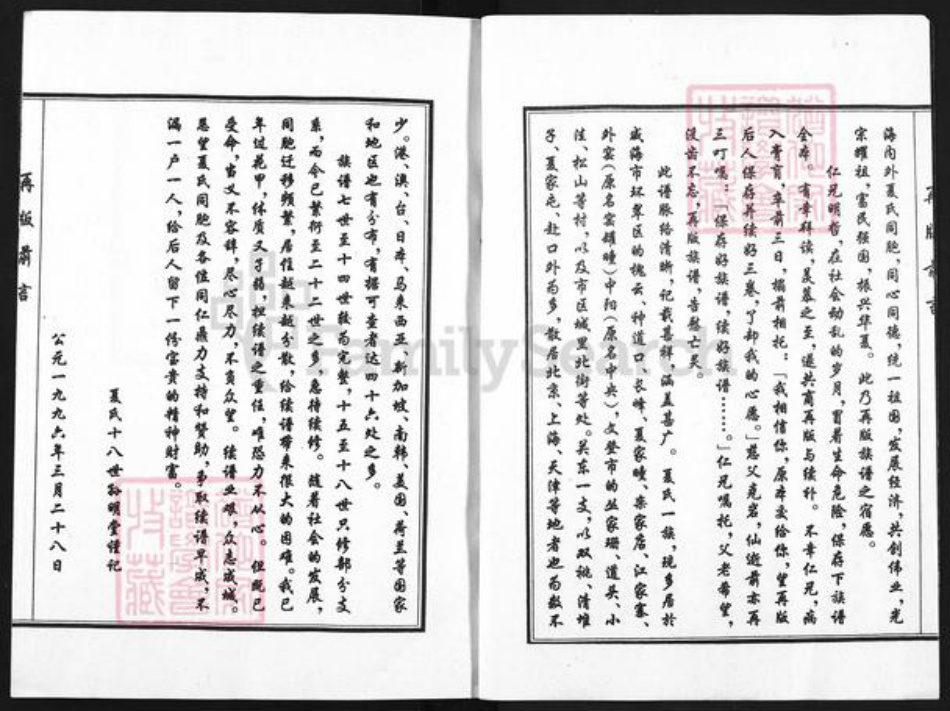 再版前言
海内外夏氏同胞，同心同德，统一祖国，发展经济，共创伟业，光
宗耀祖，富民强国，振兴华夏。此乃再版族谱之宿愿。
仁兄明哲，在社会动乱的岁月，冒着生命危险，保存下族谱
全本。有幸拜读，羡慕之至，遂共商再版与续补。不幸仁兄，病
入膏肓，卒前三日，榻前相托：「我相信你，原本交给你，望再版
后人保存并续好三卷，了却我的心愿。」慈父克岩，仙逝前亦再
三叮嘱：「保存好族谱，续好族谱……。」仁兄嘱托，父老希望，
没齿不忘，再版族谱，告慰亡灵。
此谱脉络清晰，记载甚祥，涵盖甚广。夏氏一族，现多居於
威海市环翠区的槐云、神道口、长峰、夏家疃、栾家店、江家寨、
外窑（原名窑罐疃）中阳（原名中央），文登市的丛家埠、道头、小
洼、松山等村，以及市区城里北街等处。关东一支，以双祧、清堆
子、夏家屯、赴口外为多，散居北京、上海、天津等地者也为数不
少。港、澳、台、日本、马来西亚、新加坡、南韩、美国、荷兰等国家
和地区也有分布，有据可查者达四十六处之多。
族谱七世至十四世较为完整，十五至十八世只修部分支
系，而今已繁衍至二十二世之多，急待续修。随着社会的发展，
同胞迁移频繁，居住越来越分散，给续谱带来很大的困难。我已
年过花甲，体质又孑弱，担续谱之重任，唯恐力不从心。但既已
受命，当义不容辞，尽心尽力，不负众望。续谱业艰，众志成城。
恳望夏氏同胞及各位同仁鼎力支持和赞助，争取续谱早成，不
漏一户一人，给后人留下一份宝贵的精神财富。
夏氏十八世孙明堂谨记
公元一九九六年三月二十八日
再版前言
FamilySearch